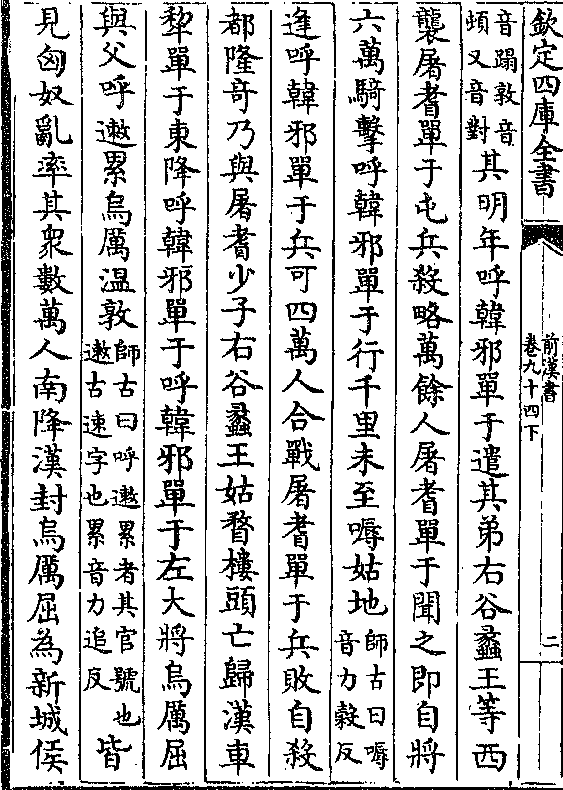 欽定四庫全書
前漢書
卷九十四下
二
音蹋敦音
頓又音對
其明年呼韓邪單于遣其弟右谷蠡王等西
襲屠耆單于屯兵殺略萬餘人屠耆單于聞之即自將
六萬騎擊呼韓邪單于行千里未至嗕姑地師古曰嗕
音力穀反
逢呼韓邪單于兵可四萬人合戰屠耆單于兵敗自殺
都隆奇乃與屠耆少子右谷蠡王姑瞀樓頭亡歸漢車
犂單于東降呼韓邪單于呼韓邪單于左大將烏厲屈
與父呼遬累烏厲温敦師古曰呼遬累者其官號也
遬古速字也累音力追反
皆
見匈奴亂率其衆數萬人南降漢封烏厲屈為新城侯